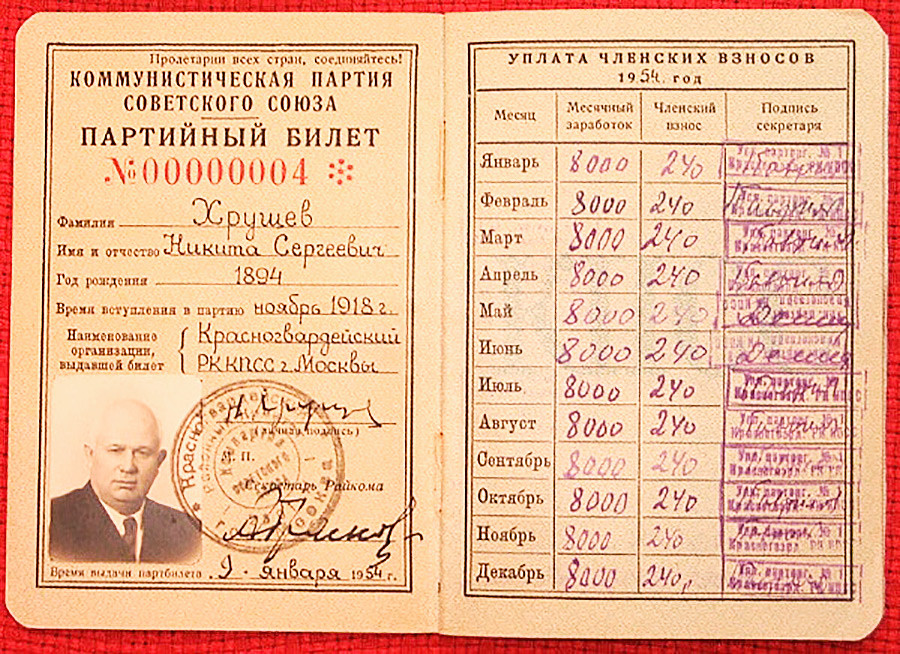 Пролетарии всех стран, соединяйтесь!
КОММУНИСТИЧЕСКАЯ ПАРТИЯ
СОВЕТСКОГО СОЮЗА
ПАРТИЙНЫЙ БИЛЕТ
№ 00000004
Фамилия Хрущев
Имя и отчество Никита Сергеевич
Год рождения 1894
Время вступления в партию ноябрь 1918 г.
Наименование организации, выдавшей билет { Красногвардейский
РК КПСС г. Москвы
(личная подпись)
М. П.
Секретарь Райкома
Время выдачи партбилета 9 января 1954 г.
УПЛАТА ЧЛЕНСКИХ ВЗНОСОВ
1954 год
Месяц Месячный заработок Членский взнос Подпись секретаря
Январь 8000 240
Февраль 8000 240
Март 8000 240
Апрель 8000 240
Май 8000 240
Июнь 8000 240
Июль 8000 240
Август 8000 240
Сентябрь 8000 240
Октябрь 8000 240
Ноябрь 8000 240
Декабрь 8000 240